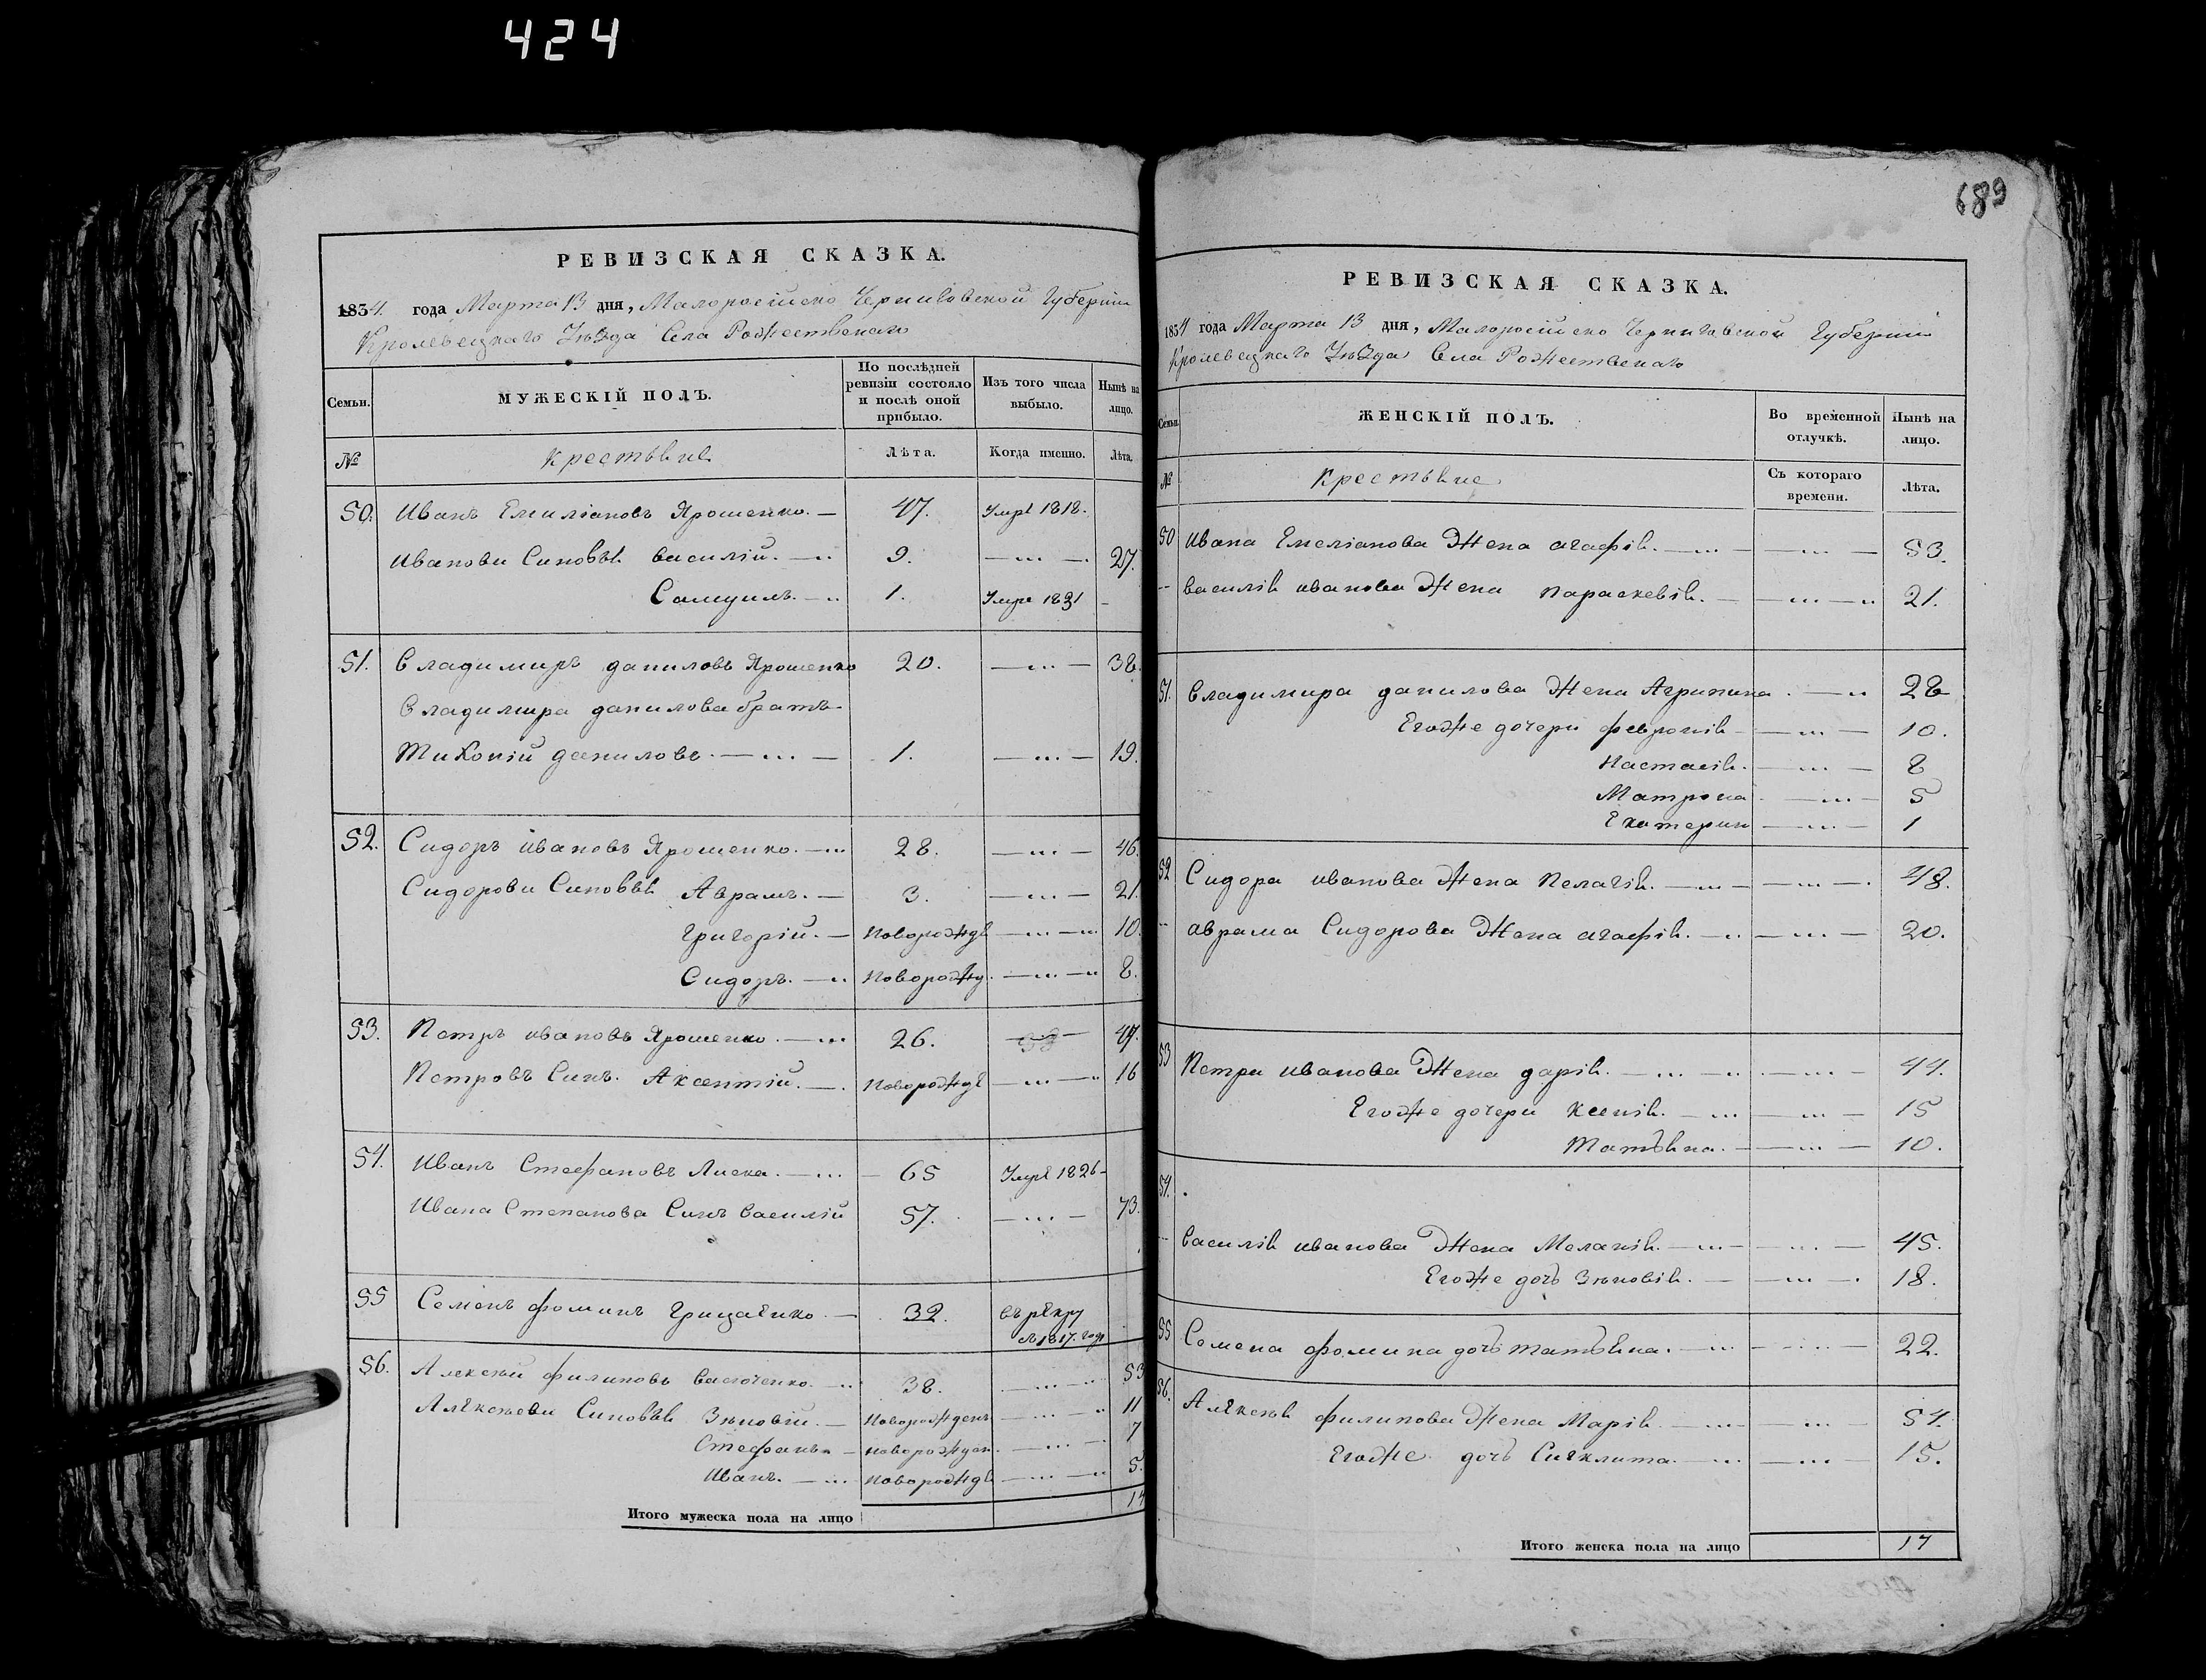 424
689
РЕВИЗСКАЯ СКАЗКА.
1834. года Марта 13 дня, Малоросійско Черниговской Губерніи
Кролевецкаго Уѣзда Села Рожественаго
Семьи. МУЖЕСКІЙ ПОЛЪ. По послѣдней ревизіи состояло и послѣ оной прибыло. Изъ того числа выбыло. Нынѣ на лицо.
№ Крестьяне Лѣта. Когда именно. Лѣта.
50. Иванъ Емиліановъ Ярошенко. — 47. Умре 1818.
Иванови Синовья василій. — 9. — 27.
Самуилъ. — 1. Умре 1821 -
51. Владимиръ даниловъ Ярошенко 20. — 38.
Владимира данилова братъ
Тихоній даниловъ. — 1. — 19.
52. Сидоръ ивановъ Ярошенко. — 28. — 46.
Сидорови Синовья Аврамъ. — 3. — 21.
Григорій. — Новорожде — 10.
Сидоръ. — Новорожд. — 8.
53. Петръ ивановъ Ярошенко. — 26. — 44.
Петровъ Синъ. Аксентій. — Новорожде — 16
54. Иванъ Стефановъ Лиска. — 65 Умре 1826 -
Ивана Степанова Синъ Василій 57. — 73.
55 Семенъ фоминъ Грицаенко — 32. въ рекру
в 1817. году
56. Алексѣй филиповъ Васюченко — 38. — 53
Алексѣеви Синовья Зѣновій. — Новорожденъ — 11
Стефанъ — новорожден. — 7
Иванъ. — Новорожде — 5.
Итого мужеска пола на лицо 14
РЕВИЗСКАЯ СКАЗКА.
1834 года Марта 13 дня, Малоросійско Черниговской Губерніи
Кролевецкаго Уѣзда Села Рожественаго
Семьи. ЖЕНСКІЙ ПОЛЪ. Во временной отлучкѣ. Нынѣ на лицо.
№ Крестьяне Съ котораго времени. Лѣта.
50 Ивана Емеліанова Жена агафія. — 53.
василія иванова Жена параскевія. — 21.
51. Владимира данилова Жена Агрипина. — 28
Егоже дочери февронія — 10.
Настасія. — 8
Матрона — 5
Екатерин — 1
52 Сидора иванова Жена Пелагія. — 48.
аврама Сидорова Жена агафія. — 20.
53 Петра иванова Жена дарія. — 44.
Егоже дочери Ксенія. — 15
Татьяна. — 10.
54.
Василія иванова Жена Меланія. — 45.
Егоже дочъ Зѣновія. — 18.
55 Семена фомина дочъ татьяна. — 22.
56. Алексѣя филипова Жена Марія — 54.
Егоже дочъ Сигклита. — 15.
Итого женска пола на лицо 17